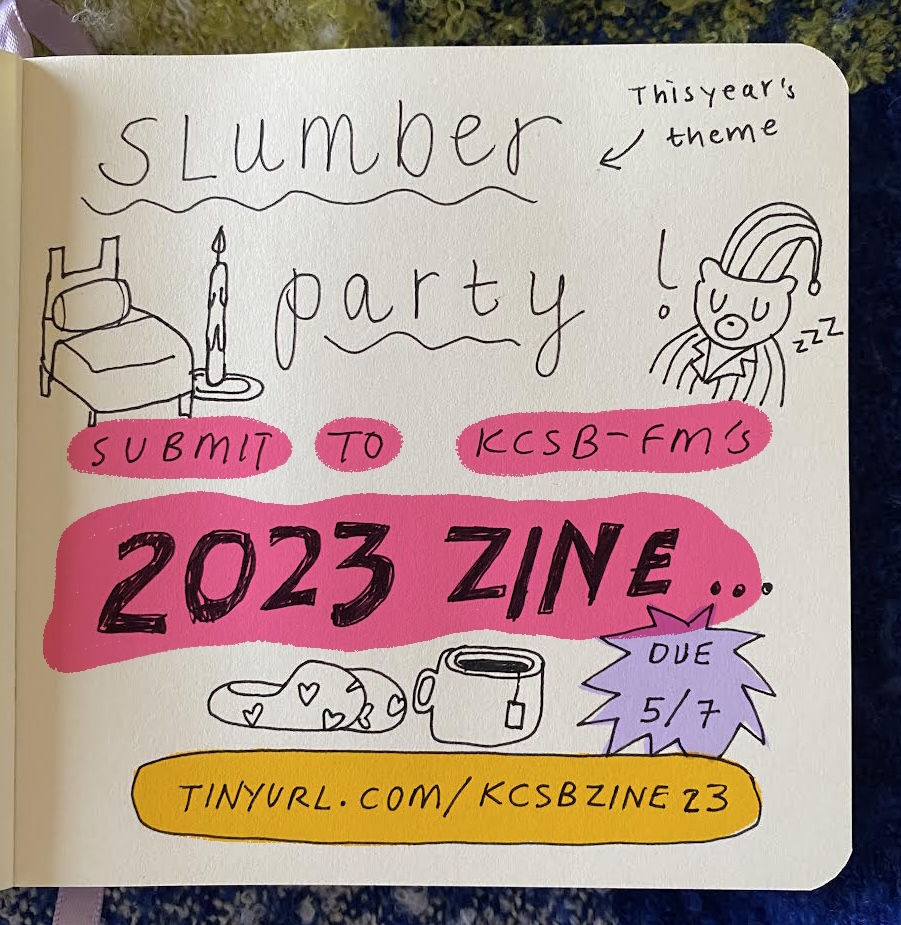 SLumber
This year's
theme
party
!
zzz
SUBMIT TO KCSB-FM's
2023 ZINE...
DUE
5/7
TINYURL.COM/KCSBZINE23